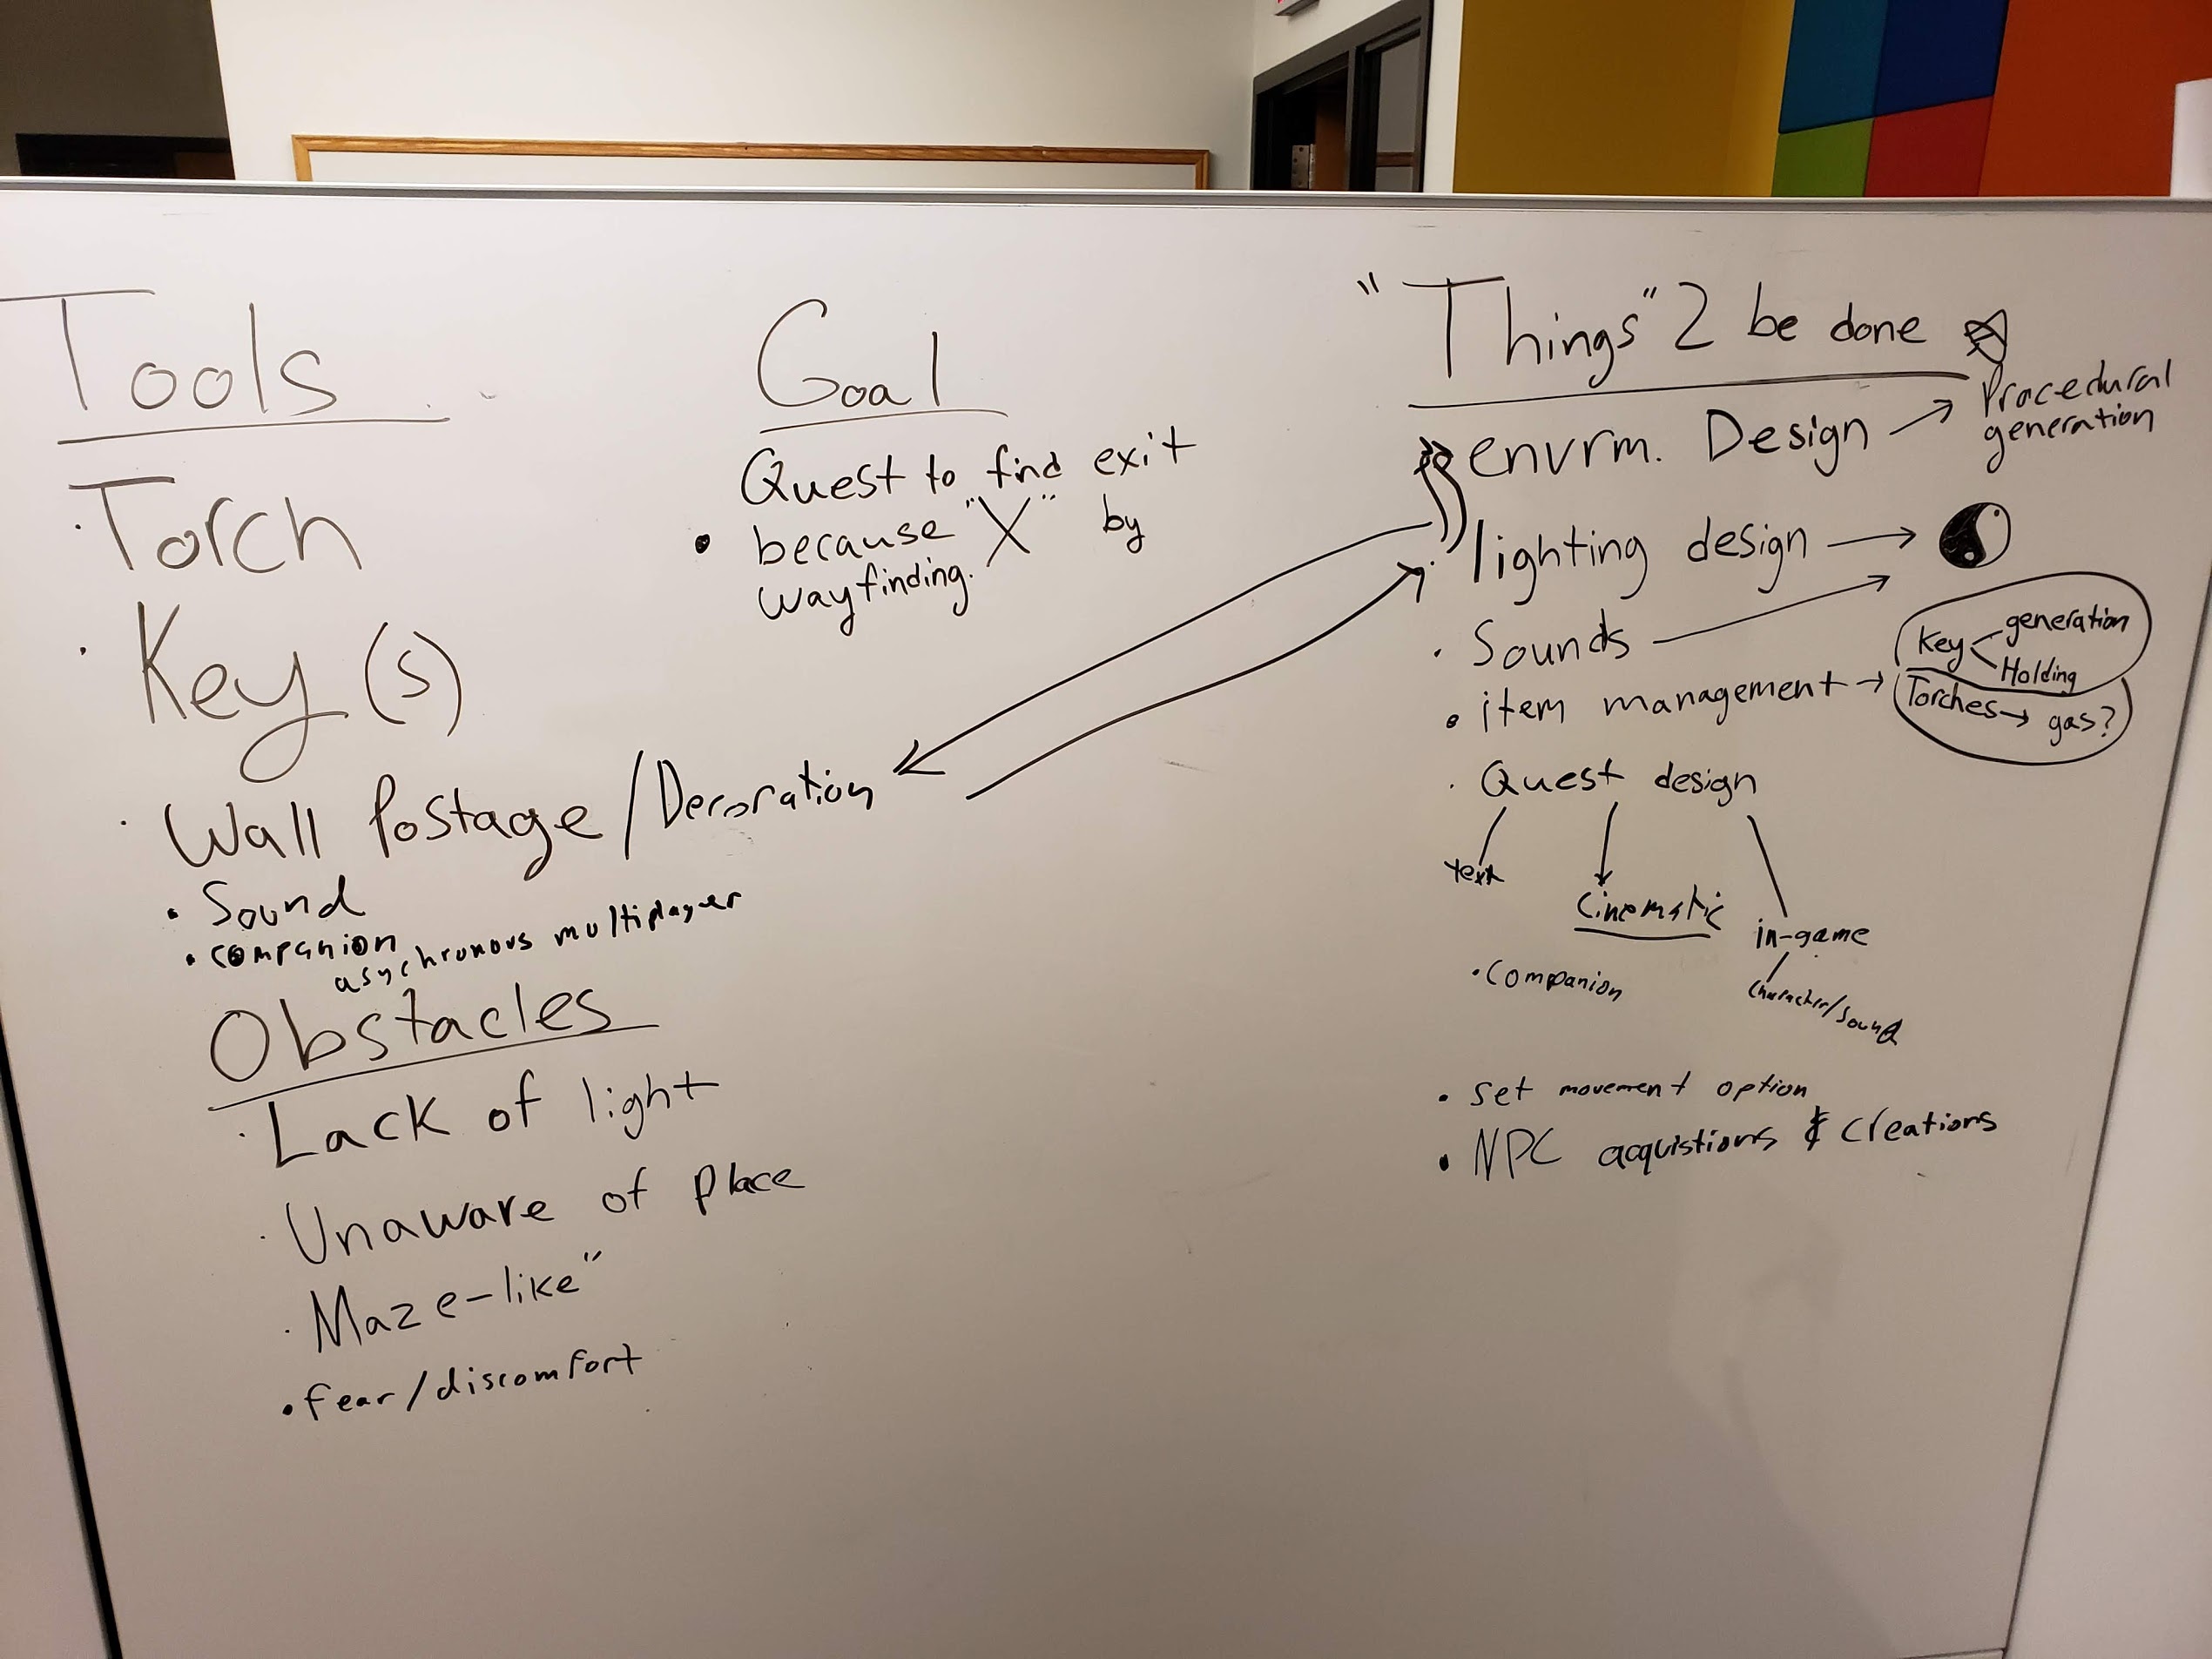 Tools
· Torch
· Key(s)
· Wall Postage/Decoration
• Sound
• companion
asychronous multiplayer
Obstacles
· Lack of light
· Unaware of place
· Maze-like"
• fear/discomfort
Goal
Quest to find exit
• because "X" by
wayfinding.
"Things" 2 be done
envrm. Design → Procedural
generation
· lighting design →
· Sounds →
• item management →
Key < generation
Holding
Torches → gas?
· Quest design
text
Cinematic
in-game
character/sound
· Companion
• set movement option
• NPC acquistions & creations